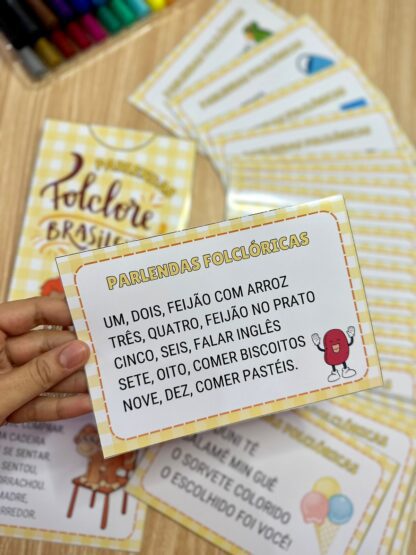 PARLENDAS
Folclore
BRASILE
PARLENDAS FOLCLÓRICAS
UM, DOIS, FEIJÃO COM ARROZ
TRÊS, QUATRO, FEIJÃO NO PRATO
CINCO, SEIS, FALAR INGLÊS
SETE, OITO, COMER BISCOITOS
NOVE, DEZ, COMER PASTÉIS.
COMPRAR
CADEIRA
SE SENTAR
SENTOU,
RRACHOU,
MADRE,
RREDOR.
CLÓRICAS
UNI TÊ
ALAMÊ MIN GUÊ
O SORVETE COLORIDO
O ESCOLHIDO FOI VOCÊ!